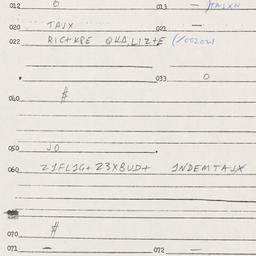 012 0 013 — JTAJXN
020 TAJX 021 —
022 RICHKRE QKA, LIZTE (/002021
033 0
040 $
050 JO
060 Z1FL1G+Z3XBUD+ 1NDEMTAJX
070 $
071 — 072 —